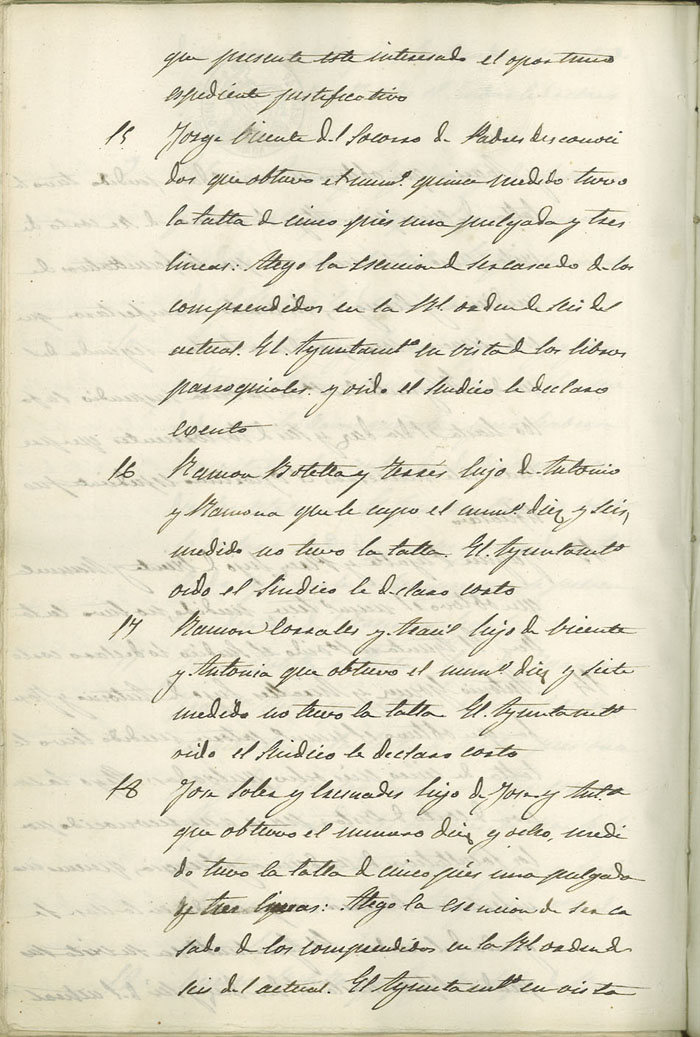 que presente este interesado el oportuno
espediente justificativo
15 Jorge Vicente del Socorro de Padres desconoci
dos que obtuvo el num.º quince medido tuvo
la talla de cinco pies una pulgada y tres
lineas: Alego la esencion de ser casado de los
comprendidos en la Rl. orden de seis del
actual. El Ayuntamt.º en vista de los libros
parroquiales y oido el Sindico le declaro
exento
16 Ramon Botella y hijo de Antonio
y Ramona que le cupo el num.º diez y seis,
medido no tuvo la talla. El Ayuntamt.º
oido el Sindico le declaro corto
17 Ramon Corrales y hijo de Vicente
y Antonia que obtuvo el num.º diez y siete
medido no tuvo la talla El Ayuntamt.º
oido el Sindico le declaro corto
18 Jose Soler y hijo de Jose y Ant.ª
que obtuvo el numero diez y ocho, medi
do tuvo la talla de cinco pies una pulgada
y tres lineas: Alego la esencion de ser ca
sado de los comprendidos en la Rl. orden de
seis del actual. El Ayuntamt.º en vista